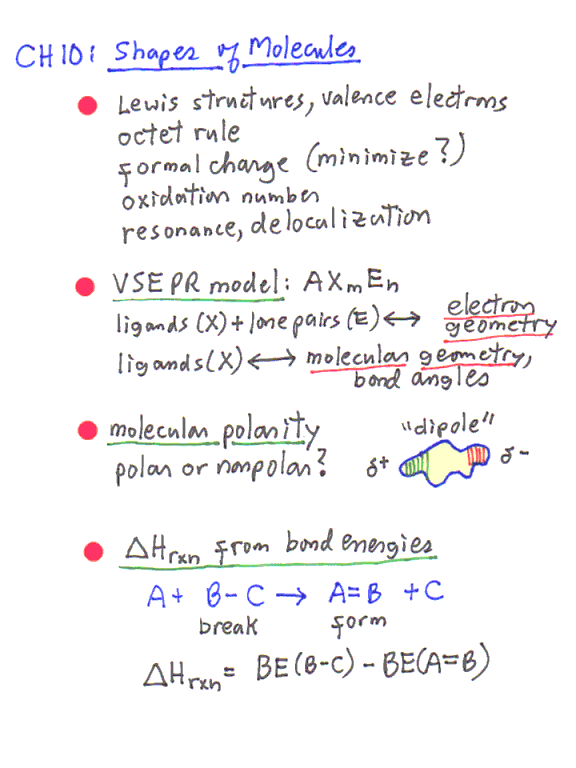 CH 10: Shapes of Molecules
Lewis structures, valence electrons
octet rule
formal charge (minimize?)
oxidation number
resonance, delocalization
VSEPR model: AXmEn
ligands (X) + lone pairs (E) ↔ electron geometry
ligands (X) ↔ molecular geometry,
bond angles
molecular polarity
polar or nonpolar?
"dipole"
δ+ δ-
ΔHrxn from bond energies
A + B-C → A=B + C
break form
ΔHrxn = BE(B-C) - BE(A=B)